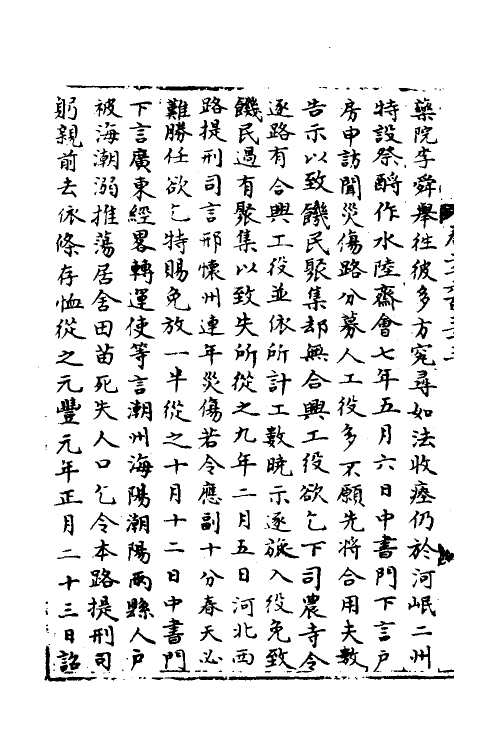 藥院李舜舉往彼多方究尋如法收瘞仍於河岷二州
特設祭酹作水陸齋會七年五月六日中書門下言戶
房申訪聞災傷路分募人工役多不願先將合用夫數
告示以致饑民聚集却無合興工役欲乞下司農寺令
逐路有合興工役並依所計工數曉示逐旋入役免致
饑民過有聚集以致失所從之九年二月五日河北西
路提刑司言邢懷州連年災傷若令應副十分春夫必
難勝任欲乞特賜免放一半從之十月十二日中書門
下言廣東經畧轉運使等言潮州海陽潮陽兩縣人戶
被海潮溺推蕩居舍田苗死失人口乞令本路提刑司
躬親前去依條存恤從之元豐元年正月二十三日詔